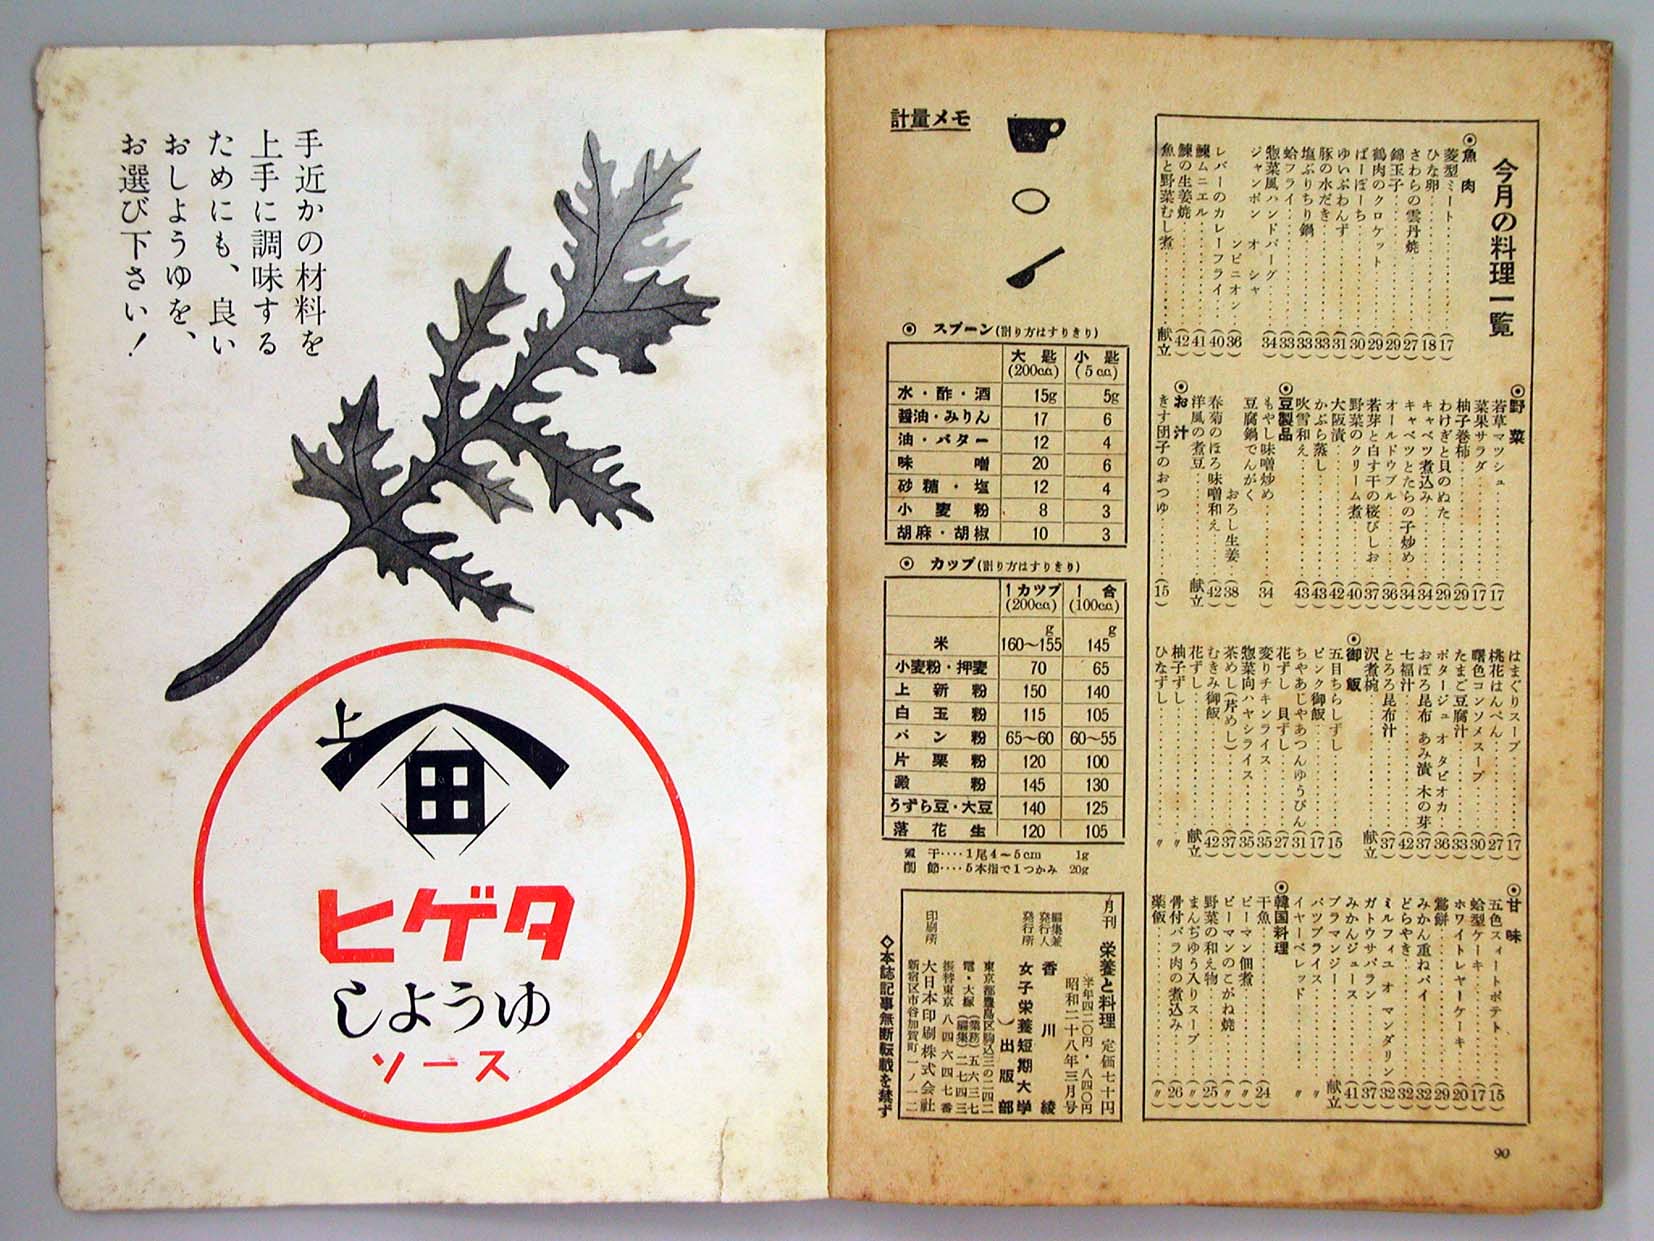 今月の料理一覧
◉魚肉
菱型ミート(17)
ひな卵(18)
さわらの雲丹焼(27)
錦玉子(29)
鶏肉のクロケット(29)
ぱーぽーち(30)
ゆいぶわんず(31)
豚の水だき(33)
塩ぶりちり鍋(33)
蛤フライ(33)
惣菜風ハンドバーグ(34)
ジャンボン オ シャンピニオン(36)
レバーのカレーフライ(40)
鰊ムニエル(41)
鰊の生姜焼(42)
魚と野菜むし煮 献立
◉野菜
若草マッシュ(17)
菜果サラダ(17)
柚子巻柿(29)
わけぎと貝のぬた(29)
キャベツ煮込み(34)
キャベツとたらの子炒め(34)
オールドウブル(36)
若芽と白す干の桜びしお(37)
野菜のクリーム煮(40)
大阪漬(42)
かぶら蒸し(43)
吹雪和え(43)
◉豆製品
もやし味噌炒め(34)
豆腐鍋でんがく おろし生姜(38)
春菊のほろ味噌和え(42)
洋風の煮豆 献立
◉お汁
きす団子のおつゆ(15)
はまぐりスープ(17)
桃花はんぺん(27)
曙色コンソメスープ(30)
たまご豆腐汁(33)
ポタージュ オ タピオカ(36)
おぼろ昆布 あみ漬 木の芽(37)
七福汁(42)
とろろ昆布汁(37)
沢煮椀 献立
◉御飯
五目ちらしずし(15)
ピンク御飯(17)
ちやあじやあつんゆうぴん(31)
花ずし 貝ずし(27)
変りチキンライス(35)
惣菜向ハヤシライス(35)
茶めし(芹めし)(37)
むきみ御飯(42)
花ずし 献立
柚子ずし 〃
ひなずし 〃
◉甘味
五色スィートポテト(15)
蛤型ケーキ(17)
ホワイトレヤーケーキ(20)
鶯餅(29)
みかん重ねパイ(32)
どらやき(32)
ミルフィユ オ マンダリン(32)
ガトウサバラン(37)
みかんジュース(41)
ブラマンジー 献立
パツブライス 〃
イヤーベレッド 〃
◉韓国料理
干魚(24)
ピーマン佃煮(〃)
ピーマンのこがね焼(〃)
野菜の和え物(25)
まんぢゆう入りスープ(〃)
骨付バラ肉の煮込み(26)
薬飯(〃)
90
計量メモ
◉ スプーン(割り方はすりきり)
大匙(200c.c.) 小匙(5c.c.)
水・酢・酒 15g 5g
醤油・みりん 17 6
油・バター 12 4
味噌 20 6
砂糖・塩 12 4
小麦粉 8 3
胡麻・胡椒 10 3
◉ カップ(割り方はすりきり)
1カツプ(200c.c.) 1合(100c.c.)
米 160〜155g 145g
小麦粉・押麦 70 65
上新粉 150 140
白玉粉 115 105
パン粉 65〜60 60〜55
片栗粉 120 100
澱粉 145 130
うずら豆・大豆 140 125
落花生 120 105
煮干‥‥1尾4〜5cm 1g
削節‥‥5本指で1つかみ 20g
月刊 栄養と料理 定価七十円
半年四二〇円・八四〇円
昭和二十八年三月号
編集兼発行人 香川綾
発行所 女子栄養短期大学出版部
東京都豊島区駒込三の二四二
電・大塚(業務)五六三七
(編集)二七四三
振替東京八四六四七番
印刷所 大日本印刷株式会社
新宿区市谷加賀町一ノ一二
◇本誌記事無断転載を禁ず
手近かの材料を
上手に調味する
ためにも、良い
おしようゆを、
お選び下さい!
上
田
ヒゲタ
しようゆ
ソース